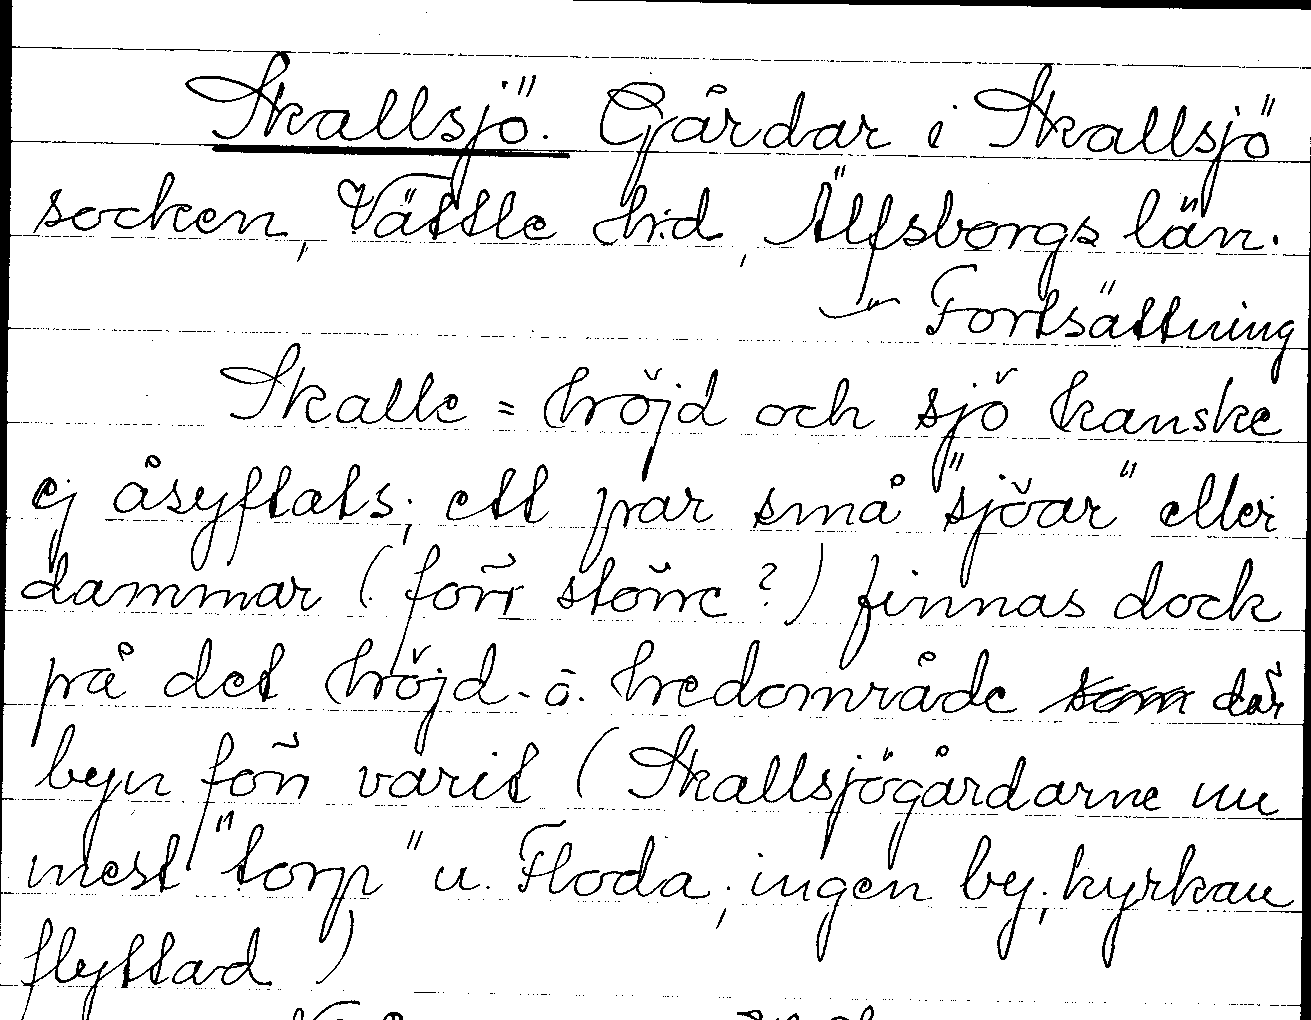 Skallsjö. Gårdar i Skallsjö
socken, Vättle h:d, Älfsborgs län.
Fortsättning
Skalle = höjd och sjö kanske
ej åsyftats; ett par små "sjöar" eller
dammar (förr större?) finnas dock
på det höjd- o. hedområde som där
byn förr varit (Skallsjögårdarne nu
mest "torp" u. Floda; ingen by; kyrkan
flyttad)